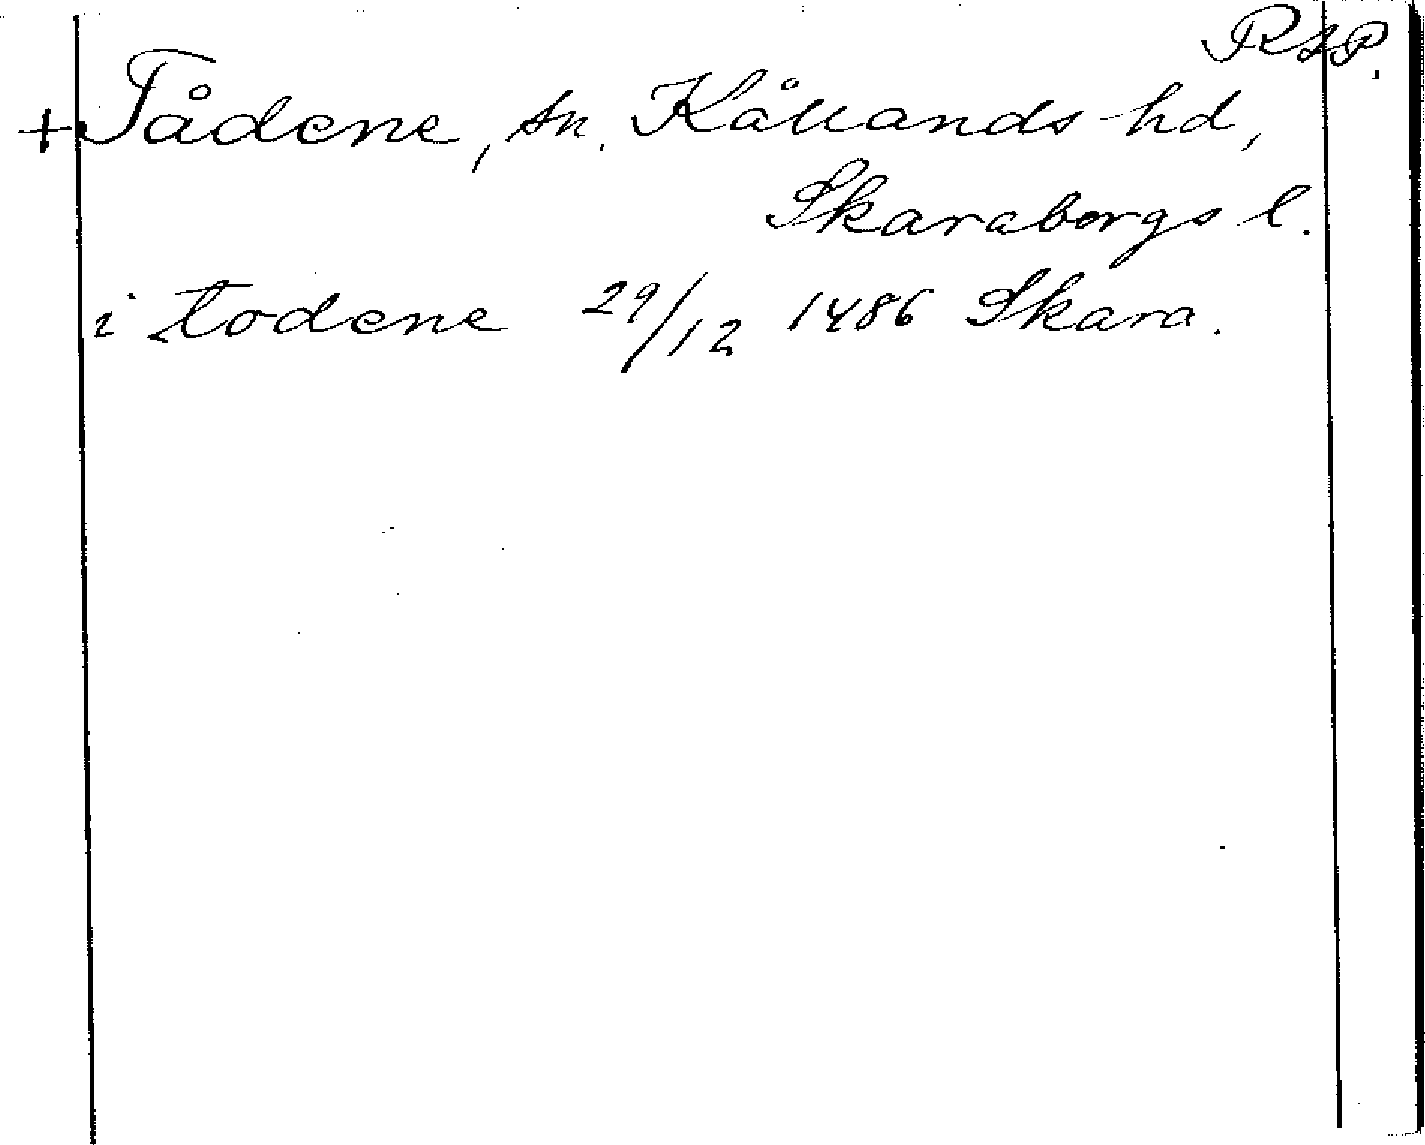 RAP.
+ Tådene, sn. Kållands hd,
Skaraborgs l.
i todene 29/12 1486 Skara.